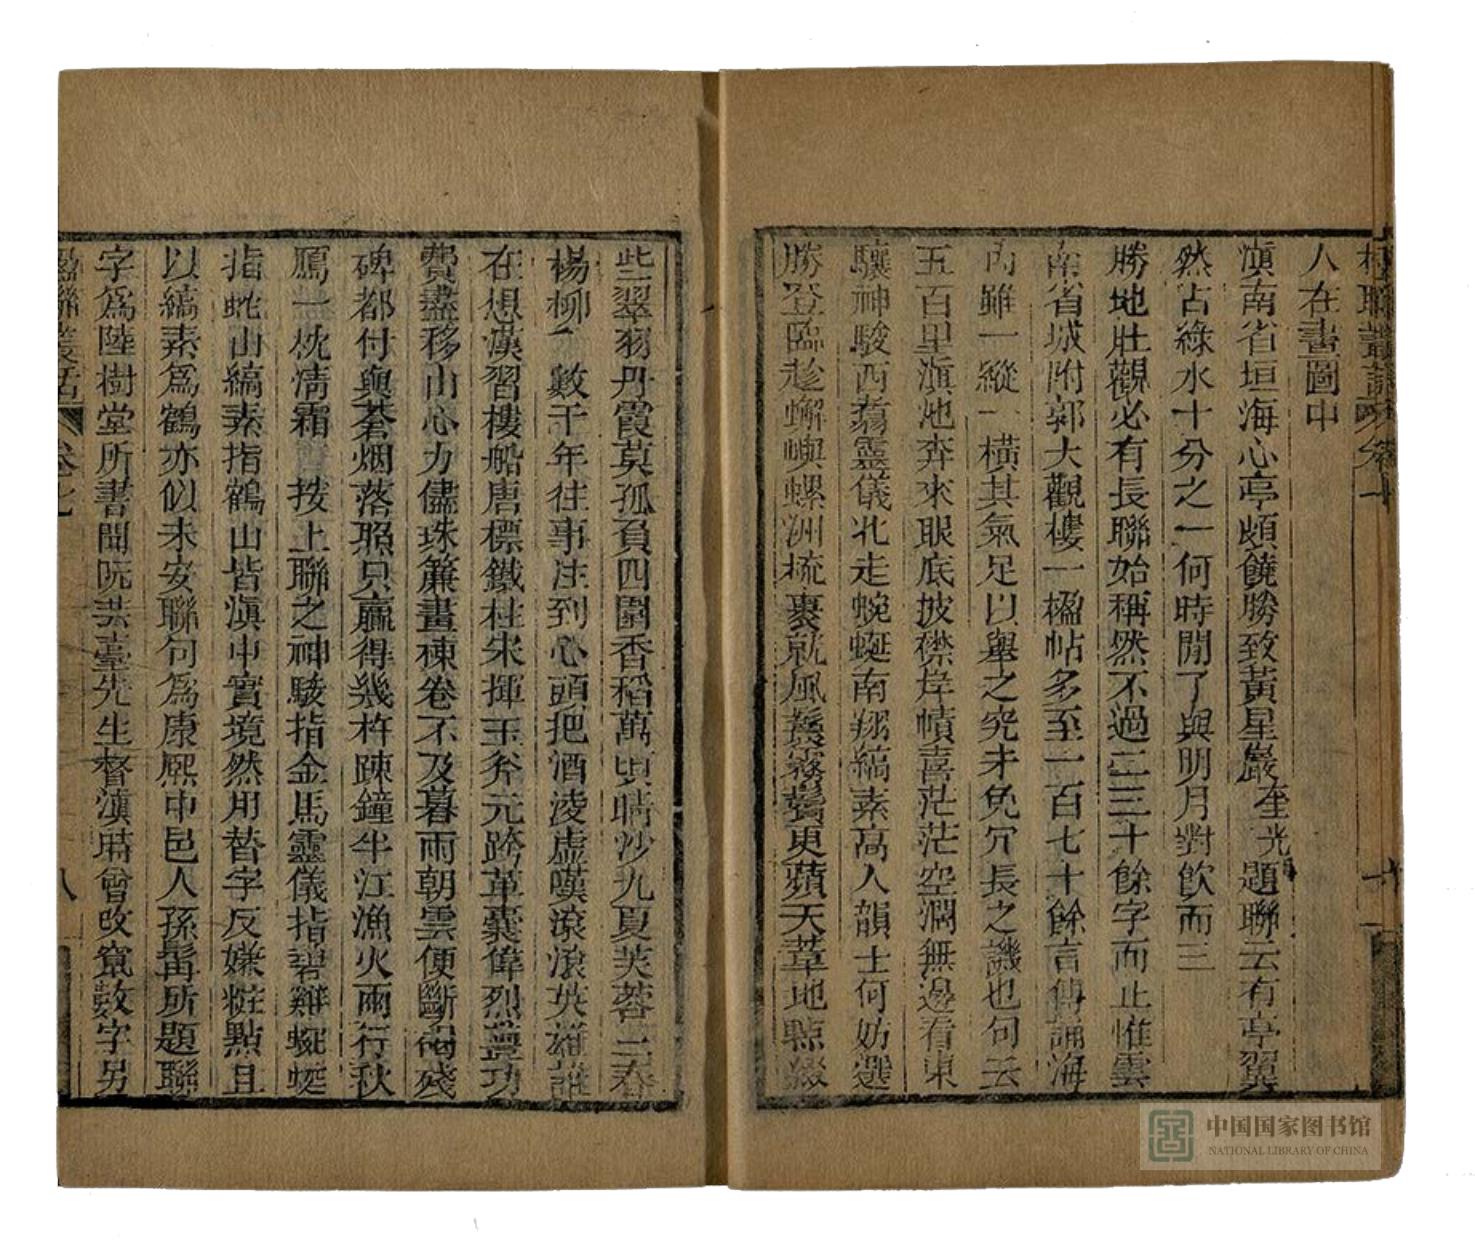 楹聯叢話 卷七
人在畫圖中
滇南省垣海心亭頗饒勝致黃星巖奎光題聯云有亭翼
然占綠水十分之一何時閒了與明月對飲而三
勝地壯觀必有長聯始稱然不過二三十餘字而止惟雲
南省城附郭大觀樓一楹帖多至一百七十餘言傳誦海
內雖一縱一橫其氣足以舉之究未免冗長之譏也句云
五百里滇池奔來眼底披襟岸幘喜茫茫空濶無邊看東
驤神駿西翥靈儀北走蜿蜒南翔縞素高人韻士何妨選
勝登臨趁蠏嶼螺洲梳裹就風鬟霧鬢更蘋天葦地點綴
些翠羽丹霞莫孤負四圍香稻萬頃晴沙九夏芙蓉三春
楊柳 數千年往事注到心頭把酒淩虛嘆滾滾英雄誰
在想漢習樓船唐標鐵柱宋揮玉斧元跨革囊偉烈豐功
費盡移山心力儘珠簾畫棟卷不及暮雨朝雲便斷碣殘
碑都付與蒼烟落照只贏得幾杵疎鐘半江漁火兩行秋
鴈一枕清霜 按上聯之神駿指金馬靈儀指碧雞蜿蜒
指蛇山縞素指鶴山皆滇中實境然用替字反嫌粧點且
以縞素爲鶴亦似未安聯句爲康熙中邑人孫髯所題聯
字爲陸樹堂所書聞阮芸臺先生督滇時曾改竄數字另
楹聯叢話 卷七 八
中国国家图书馆
NATIONAL LIBRARY OF CHINA